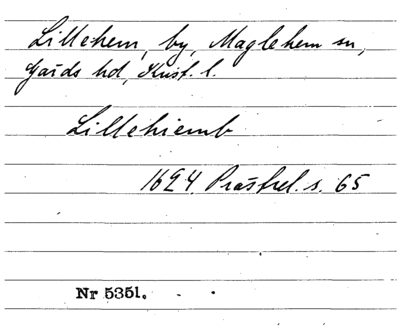 Lillehem, by, Maglehem sn,
Gärds hd, Krist. l.
Lillehiemb
1624 Prästrel. s. 65
Nr 5351.